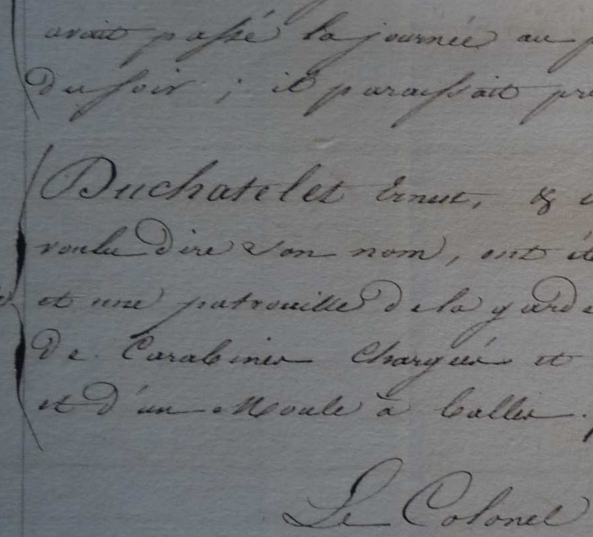 avait passé la journée au
du soir ; il paraissait
Duchatelet Ernest, &
voulu dire son nom, ont
et une patrouille de la garde
de Carabines Chargées et
et d'un Moule à balles.
Le Colonel